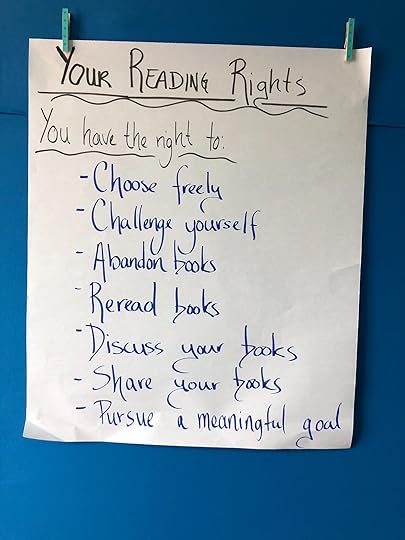 YOUR READING Rights
You have the right to:
- Choose freely
- Challenge yourself
- Abandon books
- Reread books
- Discuss your books
- Share your books
- Pursue a meaningful goal